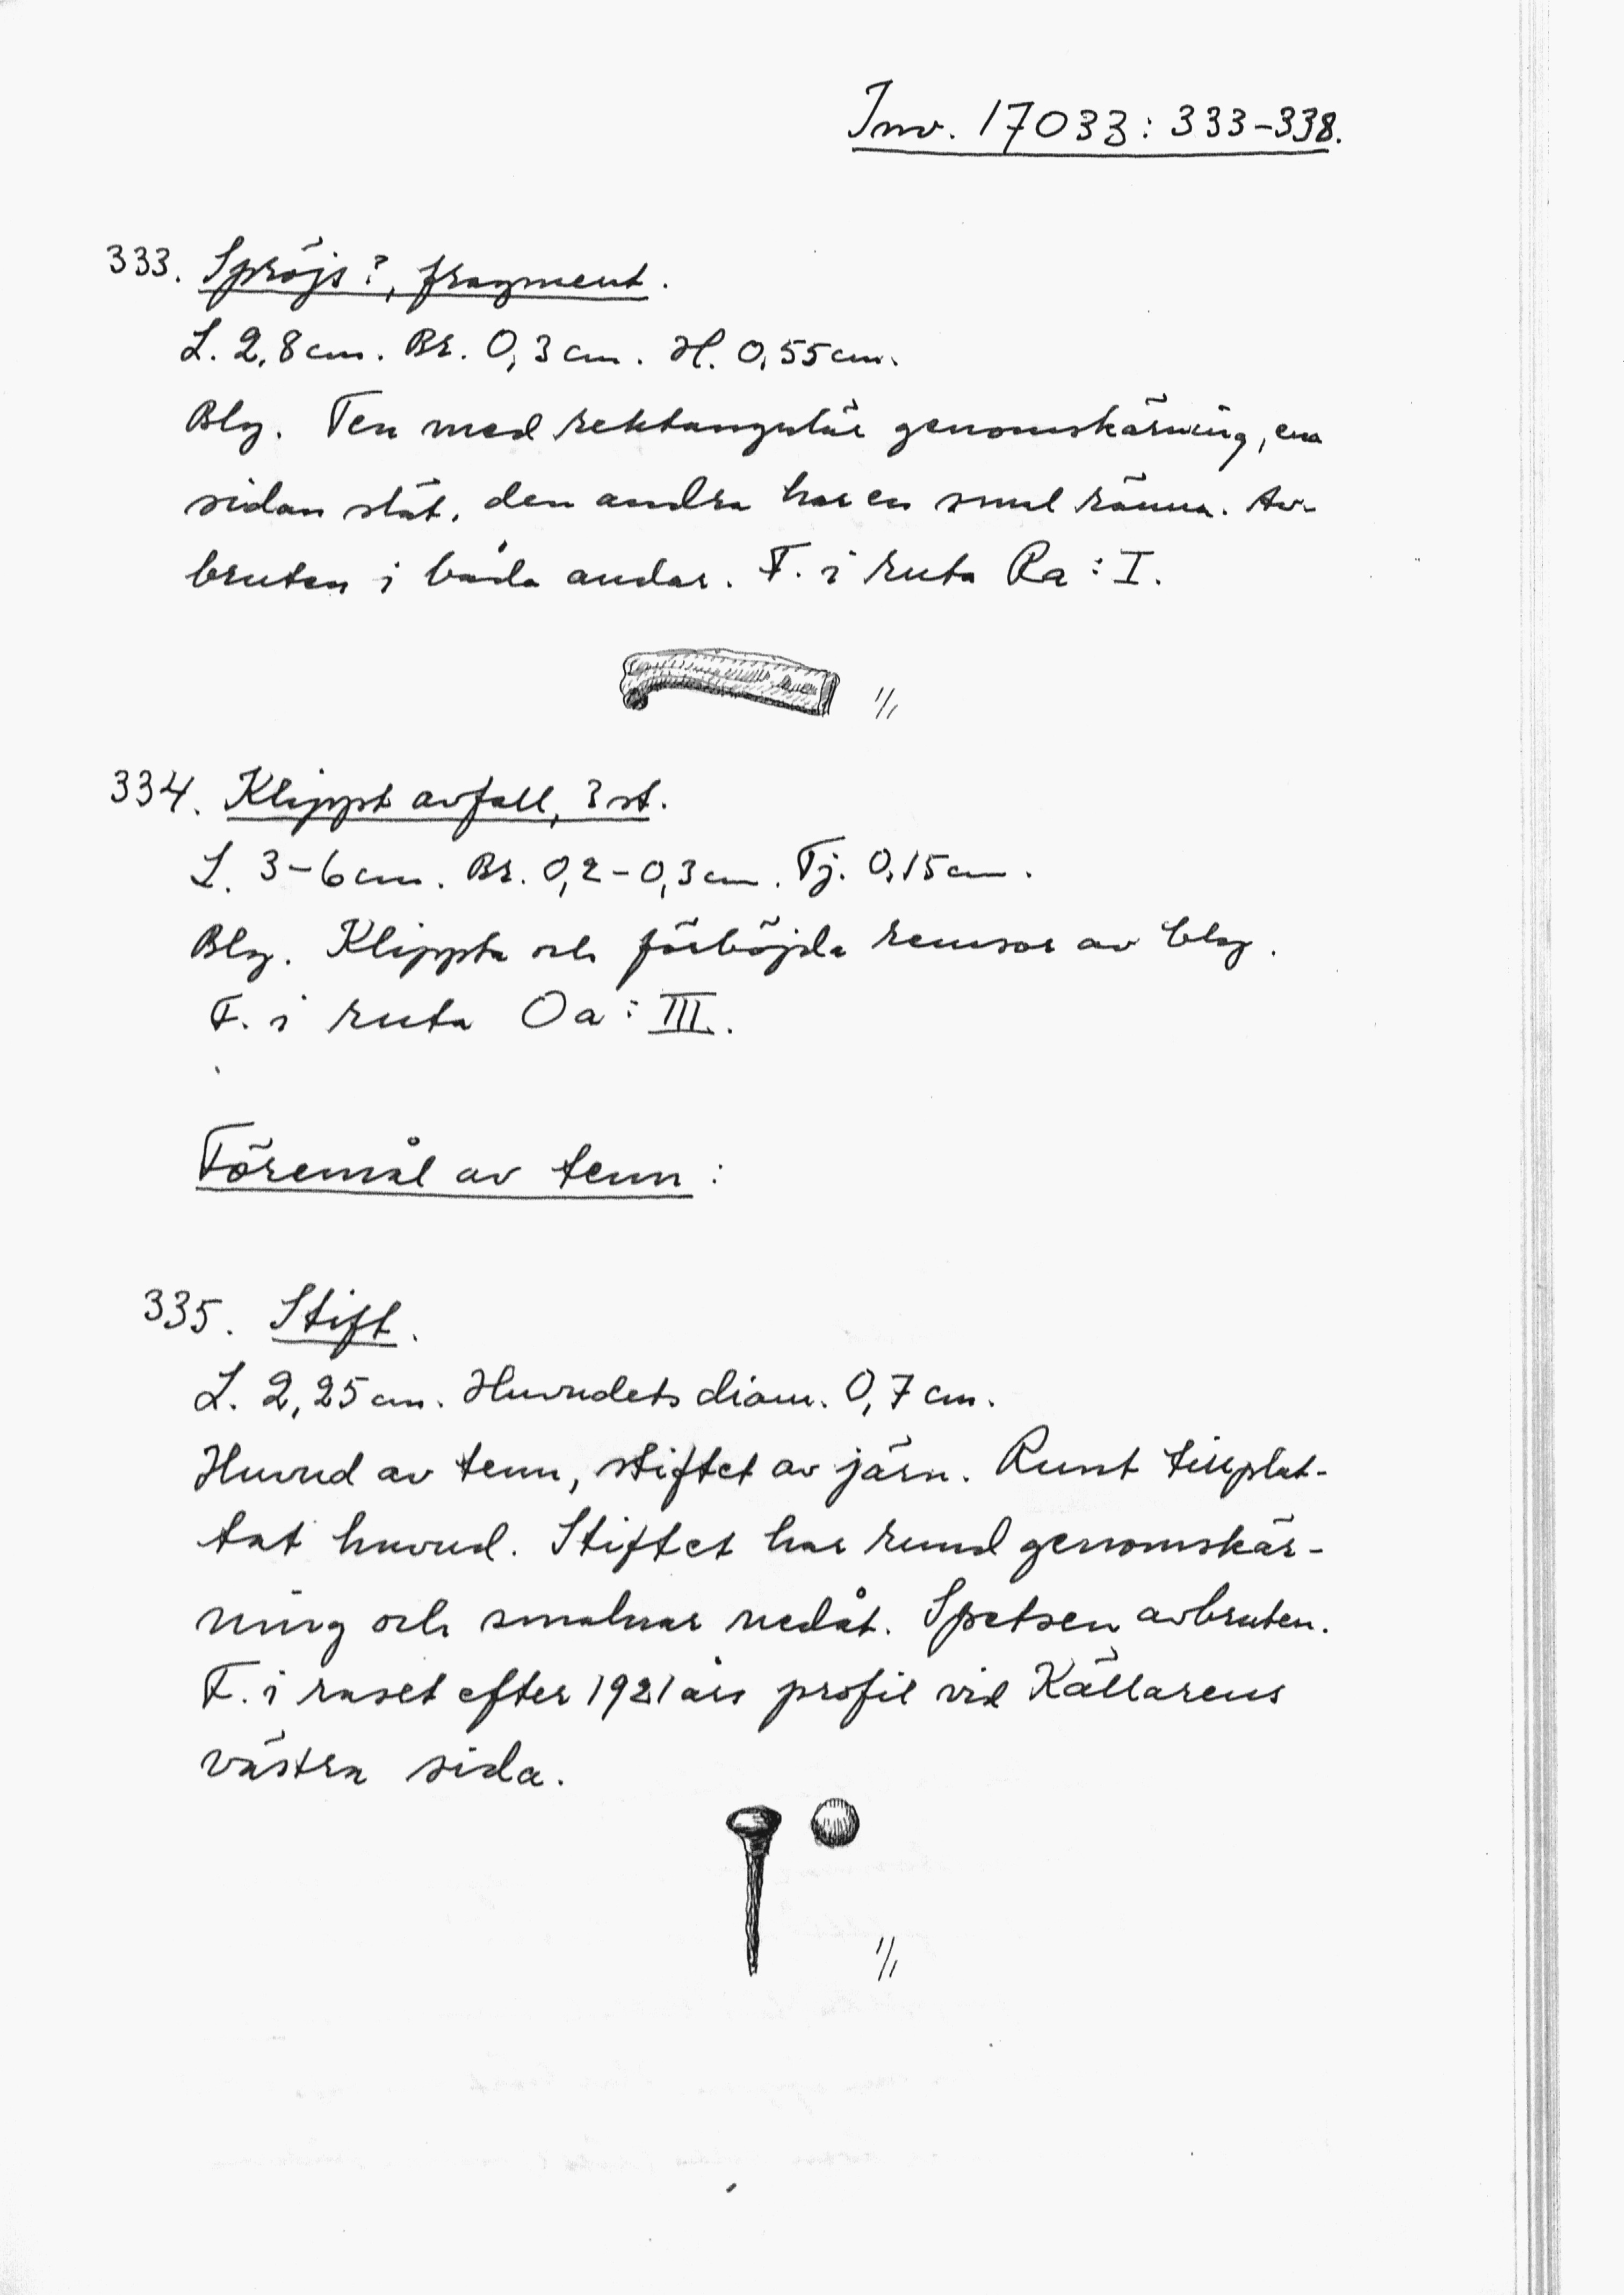 Inv. 17033: 333-338.
333. Spröjs?, fragment.
L. 2,8 cm. Br. 0,3 cm. H. 0,55 cm.
Bly. Ten med rektangulär genomskärning, ena
sidan slät, den andra har en smal ränna. Av-
bruten i båda ändar. F. i ruta Ra: I.
1/1
334. Klippt avfall, 3 st.
L. 3-6 cm. Br. 0,2-0,3 cm. Tj. 0,15 cm.
Bly. Klippta och förböjda remsor av bly.
F. i ruta Oa: III.
Föremål av tenn:
335. Stift.
L. 2,25 cm. Huvudets diam. 0,7 cm.
Huvud av tenn, stiftet av järn. Runt tillplat-
tat huvud. Stiftet har rund genomskär-
ning och smalnar nedåt. Spetsen avbruten.
F. i raset efter 1921 års profil vid Källarens
västra sida.
1/1